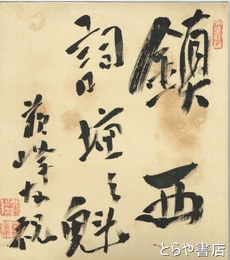 鎮西
詞壇之魁
蘇峰 祝
とらや書店